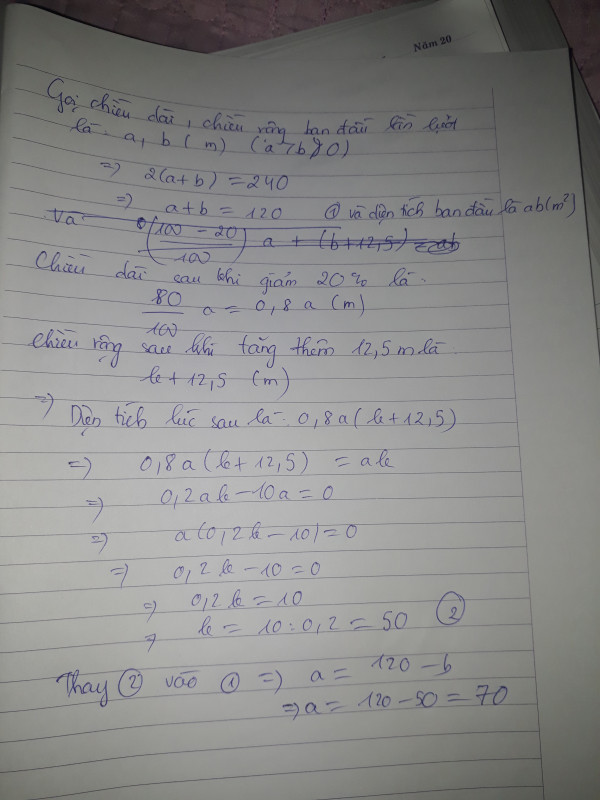 Năm 20
Gọi chiều dài, chiều rộng ban đầu lần lượt
là a, b (m) (a > b > 0)
=> 2(a+b) = 240
=> a+b = 120 ① và diện tích ban đầu là ab (m²)
Và (100 - 20 / 100) a + (b+12,5) = ab
Chiều dài sau khi giảm 20% là.
80/100 a = 0,8 a (m)
Chiều rộng sau khi tăng thêm 12,5 m là
b + 12,5 (m)
=> Diện tích lúc sau là: 0,8a(b+12,5)
=> 0,8a(b+12,5) = ab
=> 0,2ab - 10a = 0
=> a(0,2b - 10) = 0
=> 0,2b - 10 = 0
=> 0,2b = 10
=> b = 10 : 0,2 = 50 ②
Thay ② vào ① => a = 120 - b
=> a = 120 - 50 = 70